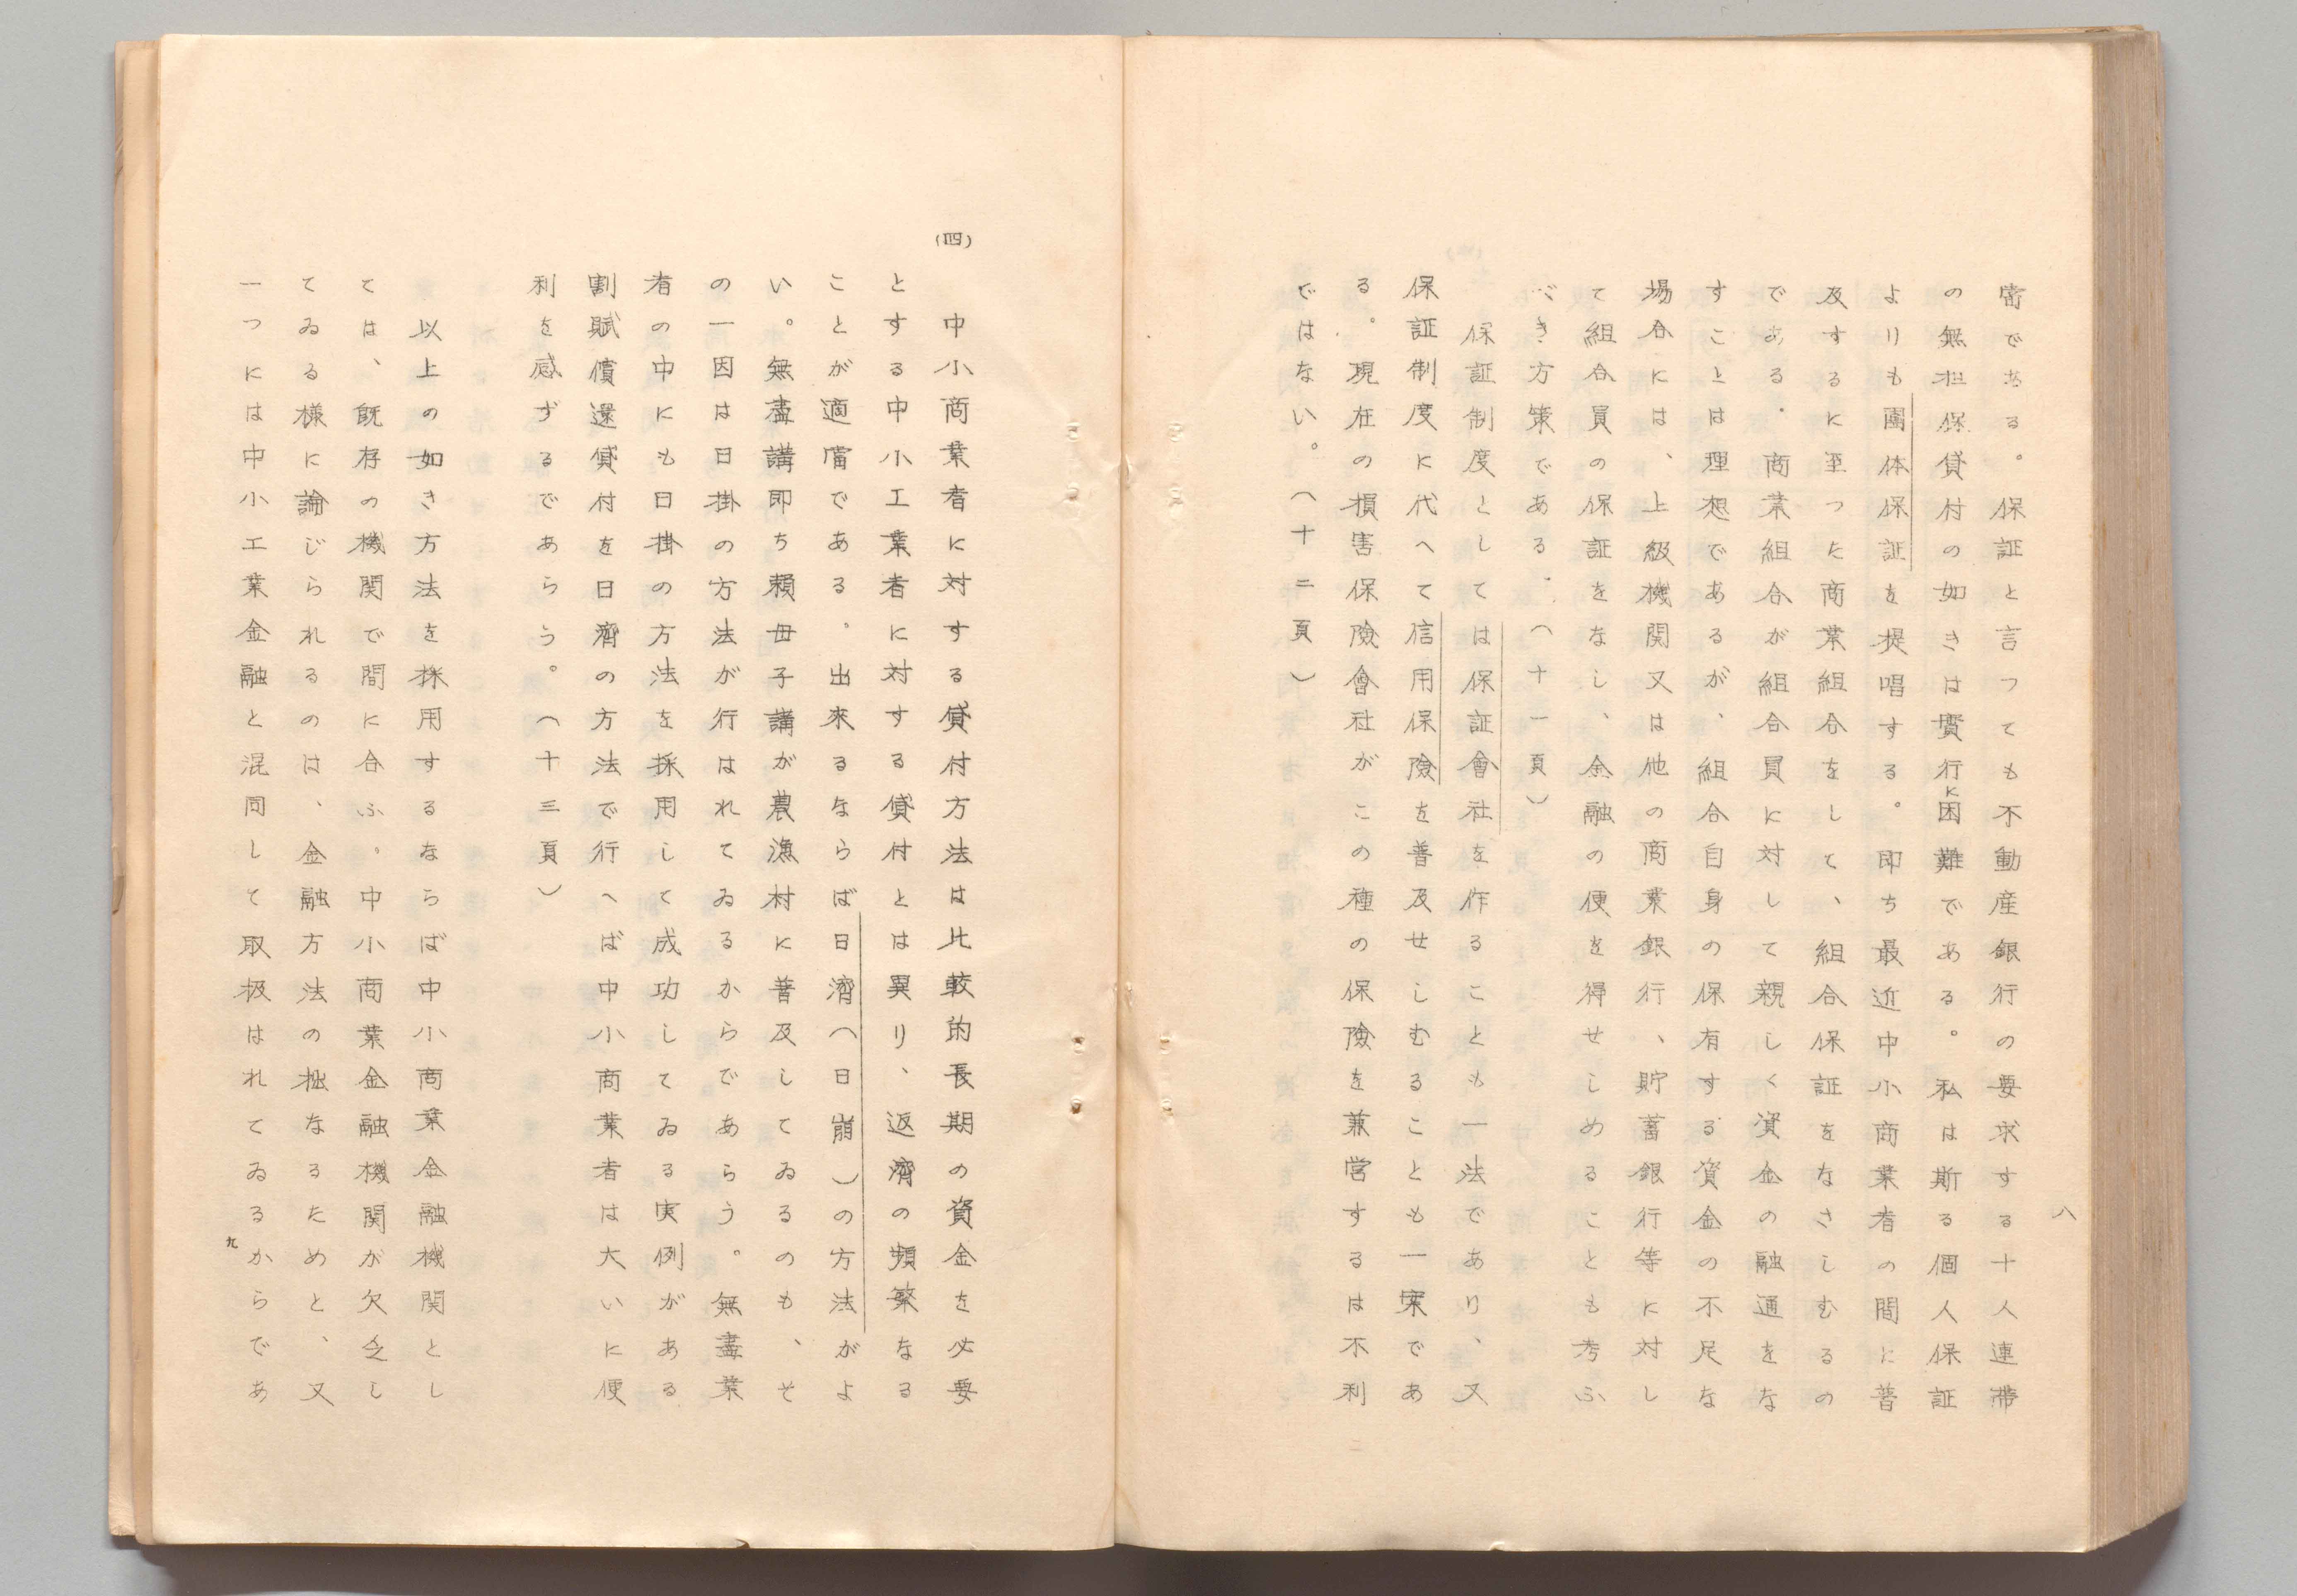 八
寄である。保証と言つても不動産銀行の要求する十人連帯
の無担保貸付の如きは實行に困難である。私は斯る個人保証
よりも團体保証を提唱する。即ち最近中小商業者の間に普
及するに至つた商業組合をして、組合保証をなさしむるの
である。商業組合が組合員に対して親しく資金の融通をな
すことは理想であるが、組合自身の保有する資金の不足な
場合には、上級機関又は他の商業銀行、貯蓄銀行等に対し
て組合員の保証をなし、金融の便を得せしめることも考ふ
べき方策である。(十一頁)
保証制度としては保証會社を作ることも一法であり、又
保証制度に代へて信用保險を普及せしむることも一案であ
る。現在の損害保險會社がこの種の保險を兼営するは不利
ではない。(十二頁)
(四)
中小商業者に対する貸付方法は比較的長期の資金を必要
とする中小工業者に対する貸付とは異り、返濟の頻繁なる
ことが適當である。出來るならば日濟(日崩)の方法がよ
い。無盡講即ち頼母子講が農漁村に普及してゐるのも、そ
の一因は日掛の方法が行はれてゐるからであらう。無盡業
者の中にも日掛の方法を採用して成功してゐる実例がある
割賦償還貸付を日濟の方法で行へば中小商業者は大いに便
利を感ずるであらう。(十三頁)
以上の如き方法を採用するならば中小商業金融機関とし
ては、既存の機関で間に合ふ。中小商業金融機関が欠乏し
てゐる様に論じられるのは、金融方法の拙なるためと、又
一つには中小工業金融と混同して取扱はれてゐるからであ
九